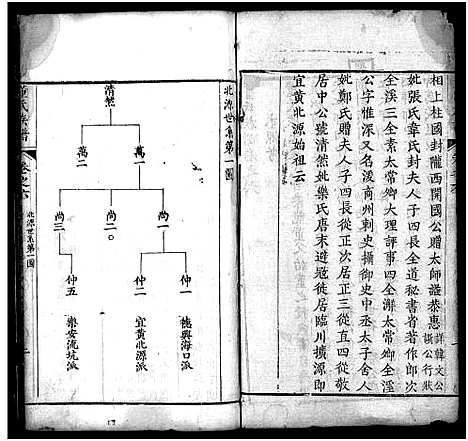 相上柱國封隴西開國公贈太師諡恭惠詳韓文公誤公行狀
妣張氏韋氏封夫人子四長全道秘書省著作郎次
全溪三全素太常卿大理評事四全澥太常卿全溪
公字惟深又名溪商州刺史攝御史中丞太子舍人
妣鄭氏贈夫人子四長從正次居正三從直四從敬
居中公號清然妣樂氏唐末避寇徙居臨川擴源即
宜黃北源始祖云
北源世系第一圖
清然
萬一
萬二
尚一
尚二〇
尚三
仲一 德興海口派
仲二 宜黃北源派
仲五 樂安流坑派
董氏族譜
卷之六
北源世系第一圖